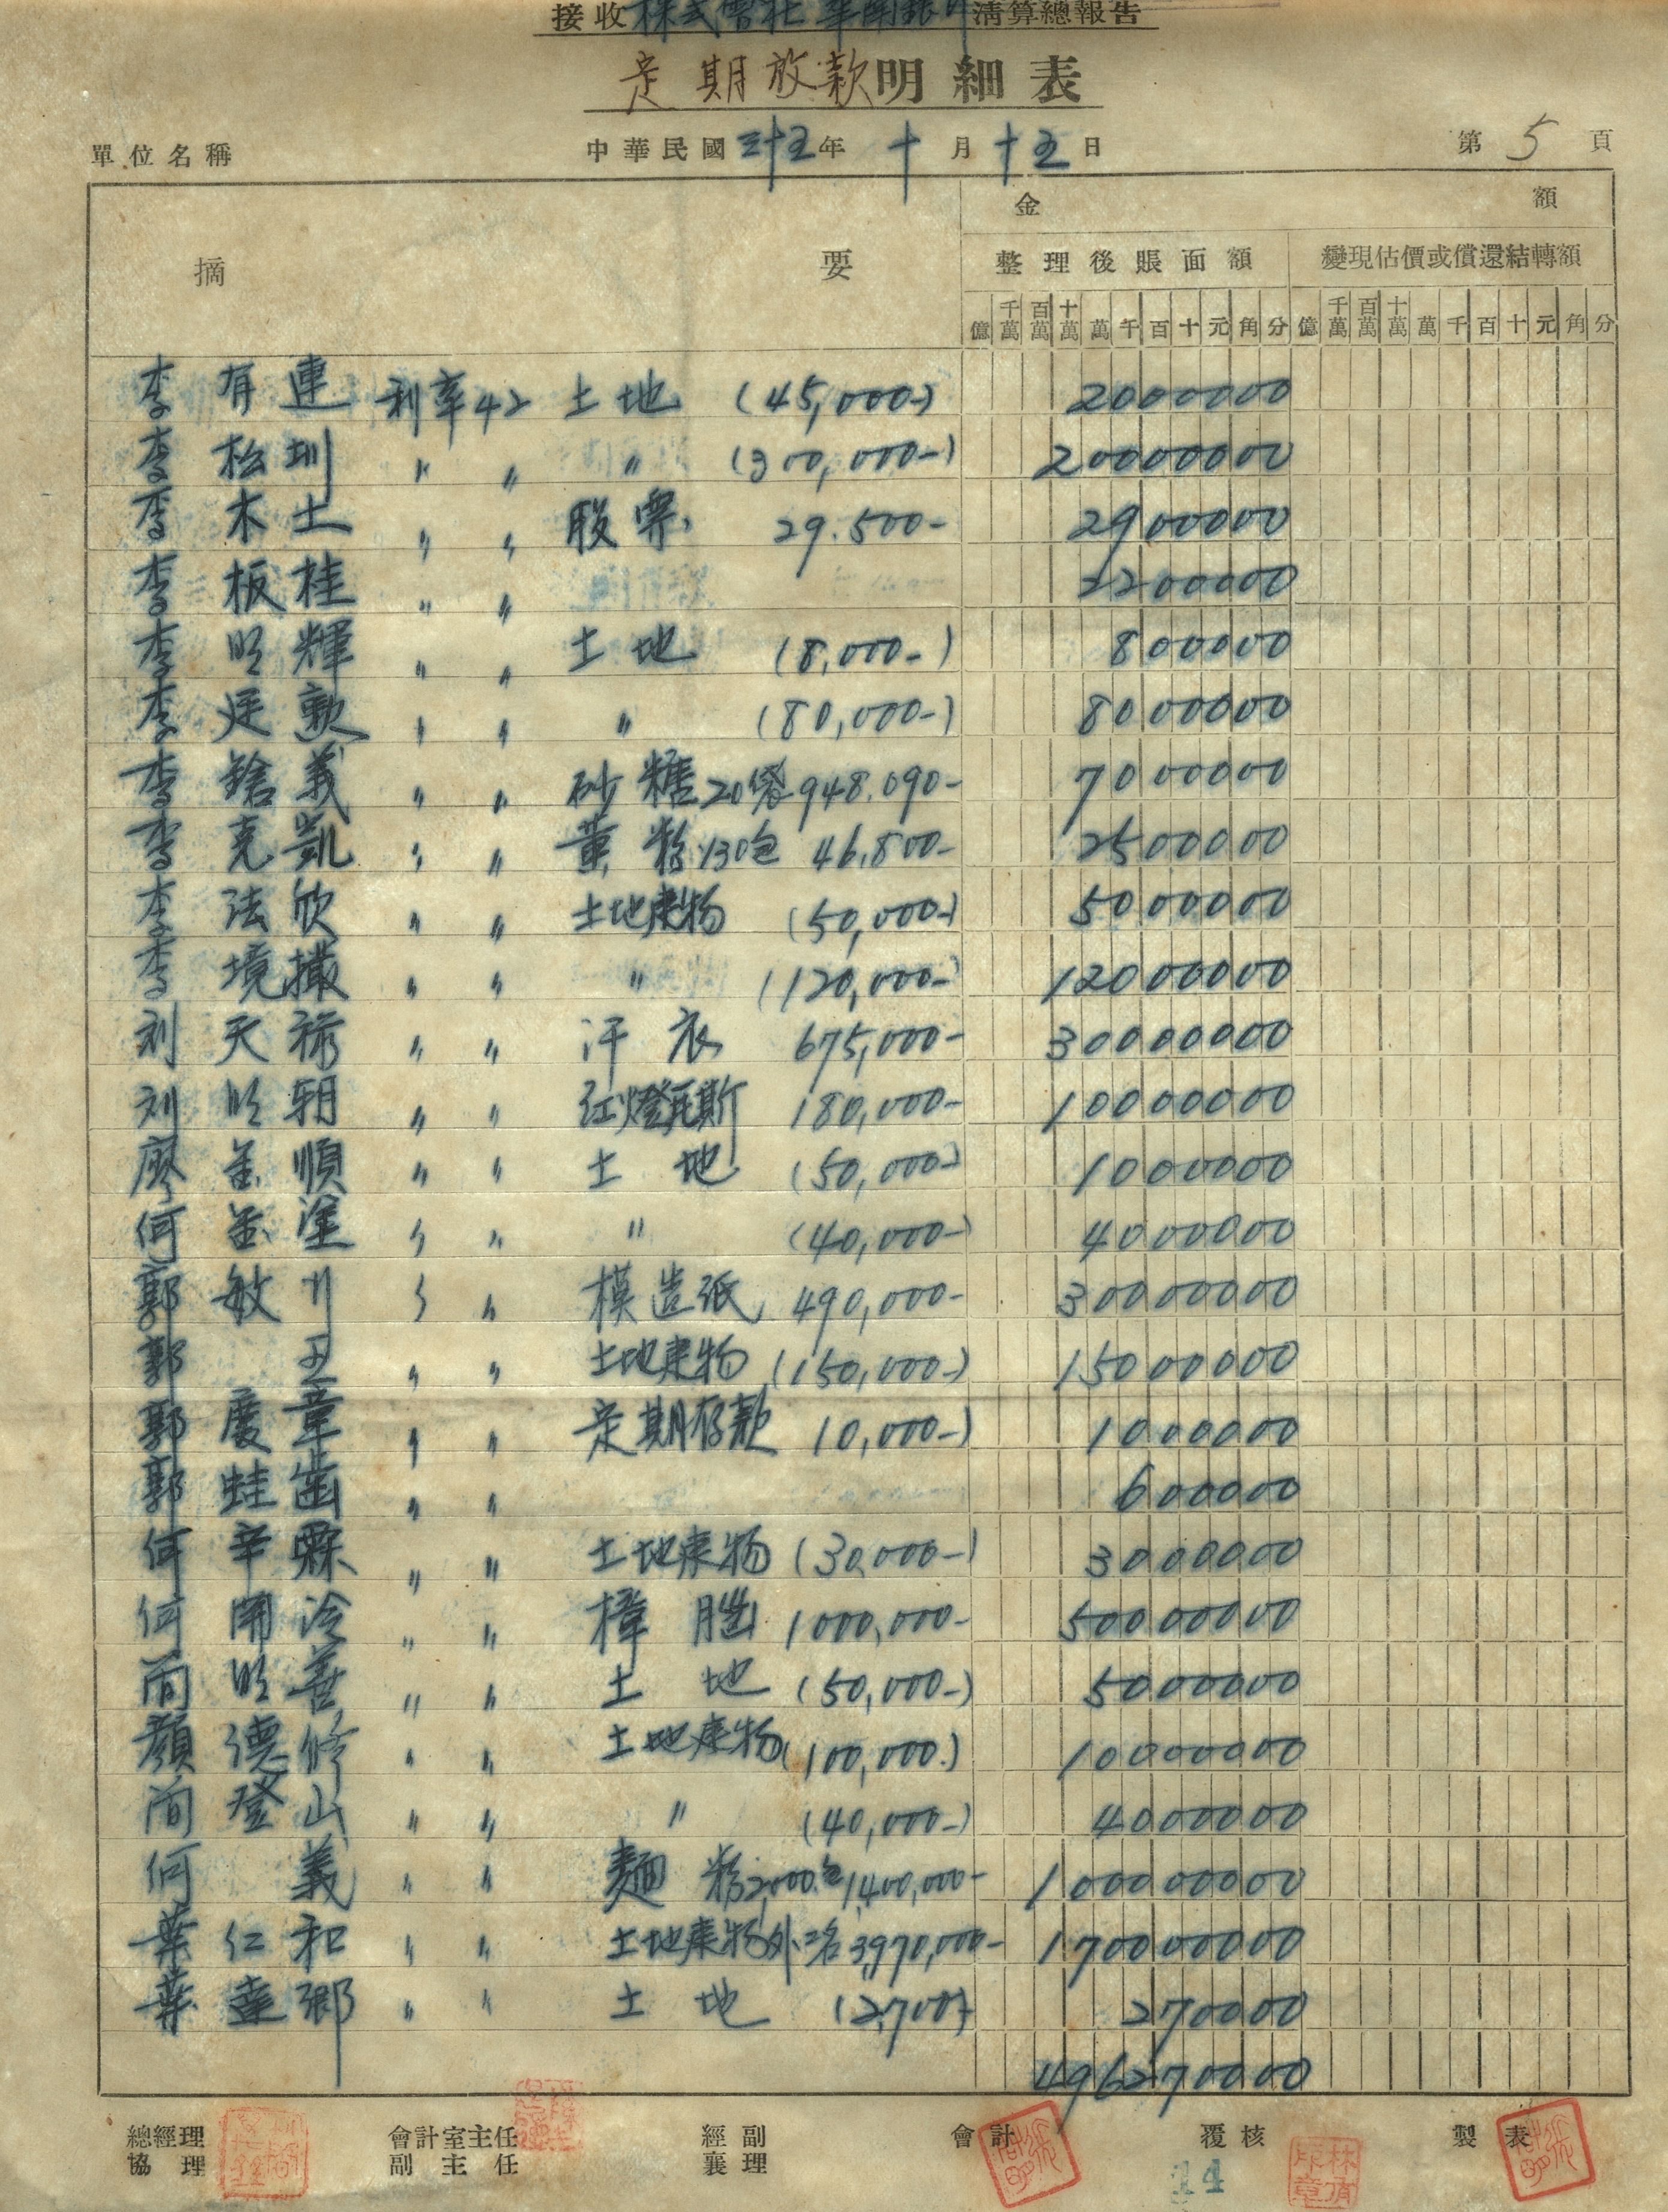 接收株式會社華南銀行清算總報告
定期放款明細表
單位名稱 中華民國三十五年十月十五日 第5頁
摘要 金額
整理後賬面額 變現估價或償還結轉額
億 千萬 百萬 十萬 萬 千 百 十 元 角 分 億 千萬 百萬 十萬 萬 千 百 十 元 角 分
李有連 利率42 土地 (45,000-) 2000000
李松圳 〃 〃 〃 (300,000-) 20000000
李木土 〃 〃 股票 29.500- 2900000
李板桂 〃 〃 2200000
李明輝 〃 〃 土地 (8,000-) 800000
李廷勳 〃 〃 〃 (80,000-) 8000000
李鎗義 〃 〃 砂糖20袋 948.090- 7000000
李克凱 〃 〃 粉130包 46.800- 2500000
李法欣 〃 〃 土地建物 (50,000-) 5000000
李境 〃 〃 〃 (120,000-) 12000000
刘天祿 〃 〃 汗衣 675,000- 30000000
刘明朝 〃 〃 红燈瓦斯 180,000- 10000000
廖金順 〃 〃 土地 (50,000-) 1000000
何金塗 〃 〃 〃 (40,000-) 4000000
郭敏川 〃 〃 模造紙 490,000- 30000000
郭 〃 〃 土地建物 (150,000-) 15000000
郭慶章 〃 〃 定期存款 10,000-) 1000000
郭蛙齒 〃 〃 600000
何辛 〃 〃 土地建物 (30,000-) 3000000
何開冷 〃 〃 樟腦 1000,000- 50000000
簡明善 〃 〃 土地 (50,000-) 5000000
顏德修 〃 〃 土地建物 (100,000.) 10000000
簡登山 〃 〃 〃 (40,000-) 4000000
何義 〃 〃 麵粉2,000包 1,400,000- 100000000
葉仁和 〃 〃 土地建物外二名 3,970,000- 170000000
葉達鄉 〃 〃 土地 (2,700-) 270000
496270000
總經理 會計室主任 經副 會計 覆核 製表
協理 副主任 襄理
14